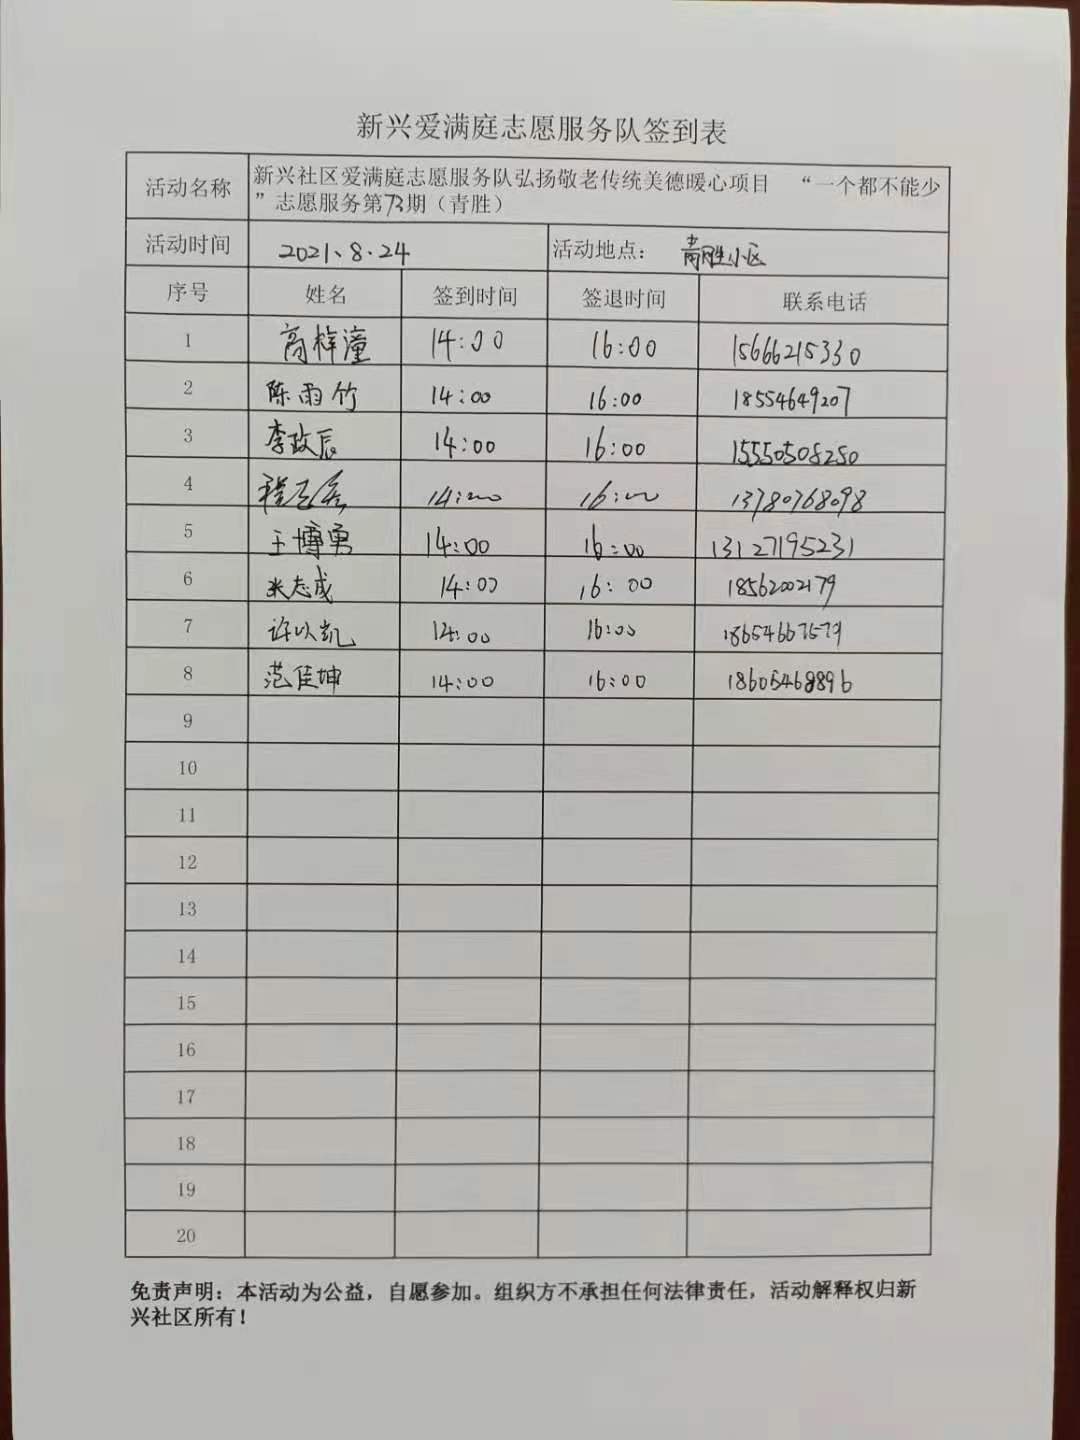 新兴爱满庭志愿服务队签到表
活动名称 新兴社区爱满庭志愿服务队弘扬敬老传统美德暖心项目 “一个都不能少
”志愿服务第73期（青胜）
活动时间 2021、8.24 活动地点： 青胜小区
序号 姓名 签到时间 签退时间 联系电话
1 高梓潼 14:00 16:00 15666215330
2 陈雨竹 14:00 16:00 18554649207
3 李政辰 14:00 16:00 15550508280
4 14:00 16:00 13780768098
5 王博勇 14:00 16:00 13127195231
6 张志成 14:00 16:00 18562002179
7 许以凯 14:00 16:00 18654667579
8 范佳坤 14:00 16:00 18605468896
9
10
11
12
13
14
15
16
17
18
19
20
免责声明：本活动为公益，自愿参加。组织方不承担任何法律责任，活动解释权归新
兴社区所有！